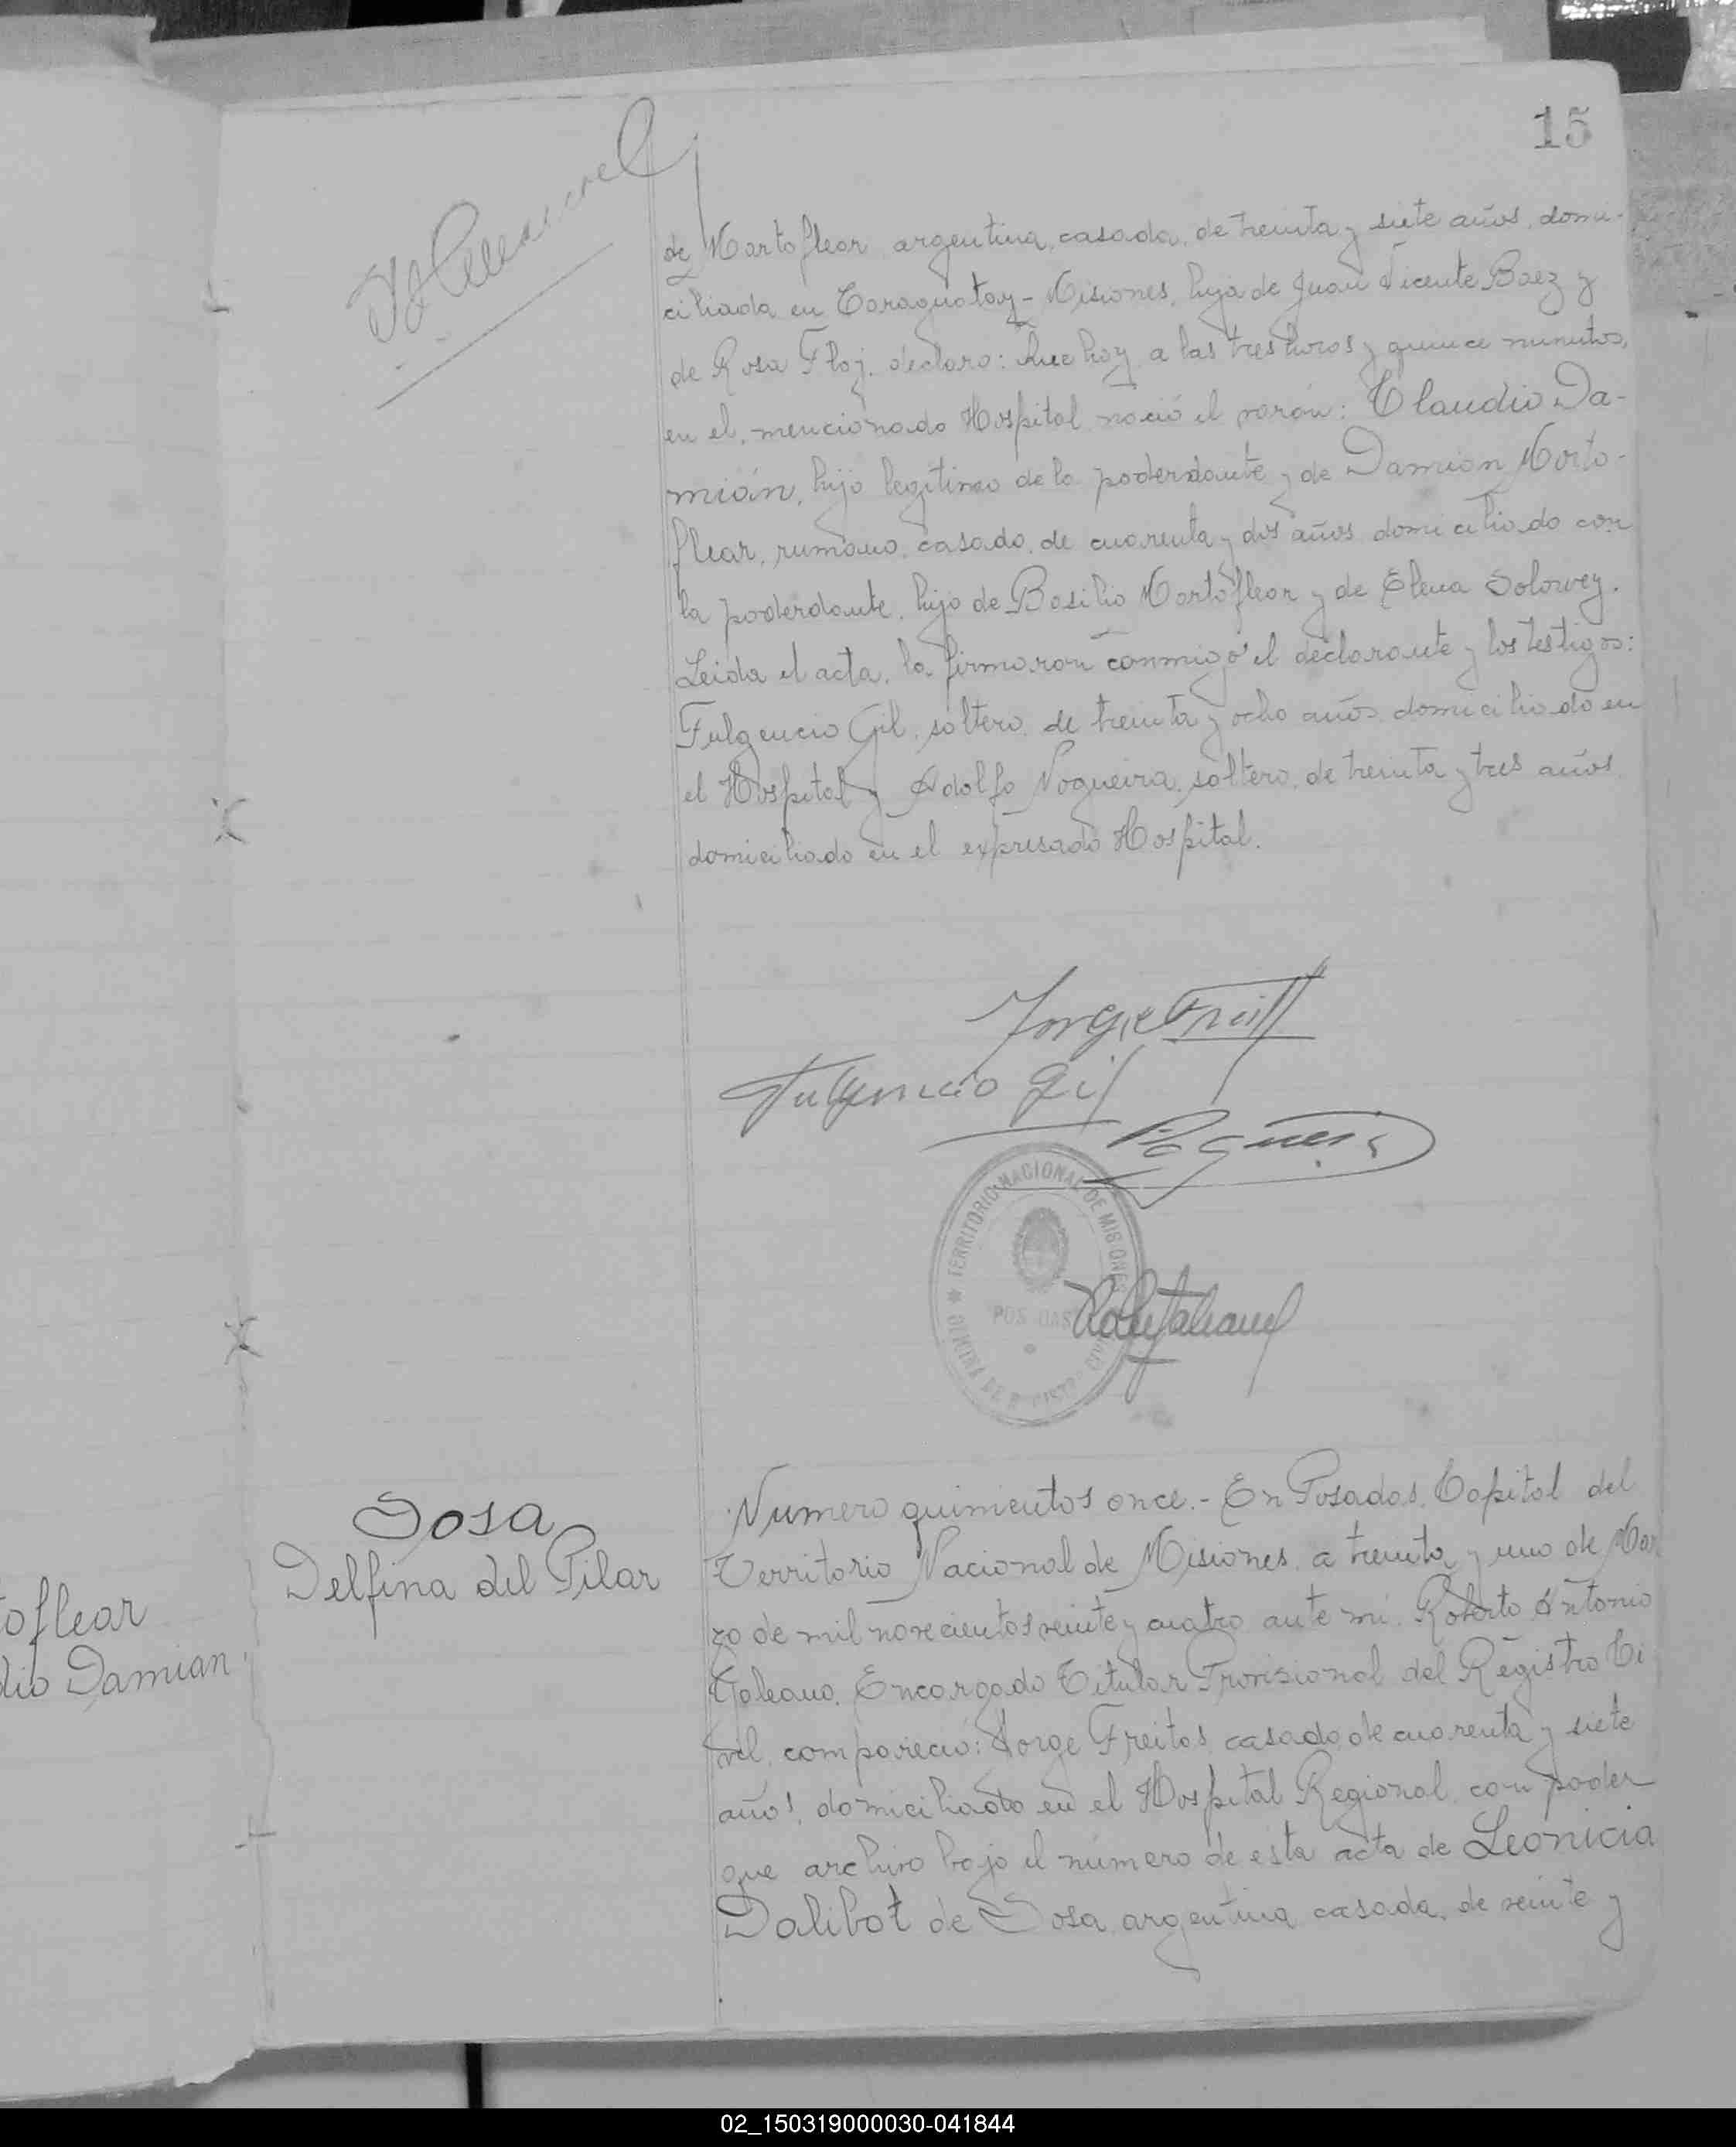 15
de Martoflear, argentina, casada, de treinta y siete años, domi-
ciliada en Caraguatay - Misiones, hija de Juan Vicente Baez y
de Rosa Floj, declaro: Que hoy a las tres horos y quince minutos,
en el mencionado Hospital nació el varón: Claudio Da-
mián, hijo legitimo de la poderdante y de Damian Marto-
flear, rumano, casado, de cuarenta y dos años domiciliado con
la poderdante, hijo de Basilio Martoflear y de Elena Solowey.
Leida el acta, la firmaron conmigo el declarante y los testigos:
Fulgencio Gil, soltero, de treinta y ocho años domiciliado en
el Hospital y Adolfo Nogueira, soltero, de treinta y tres años
domiciliado en el expresado Hospital.
Jorge
Fulgencio Gil
TERRITORIO NACIONAL DE MISIONES
POSADAS
oflear
dio Damian
Sosa
Delfina del Pilar
Numero quinientos once.- En Posadas, Capital del
Territorio Nacional de Misiones, a treinta y uno de Mar
zo de mil novecientos veinte y cuatro ante mi, Roberto Antonio
Galeano, Encargado Titular Provisional del Registro Ci
vil, comparecio: Jorge Freitas, casado, de cuarenta y siete
años, domiciliado en el Hospital Regional, con poder
que archivo bajo el número de esta acta de Leonicia
Dalibot de Sosa, argentina, casada, de veinte y
02_150319000030-041844